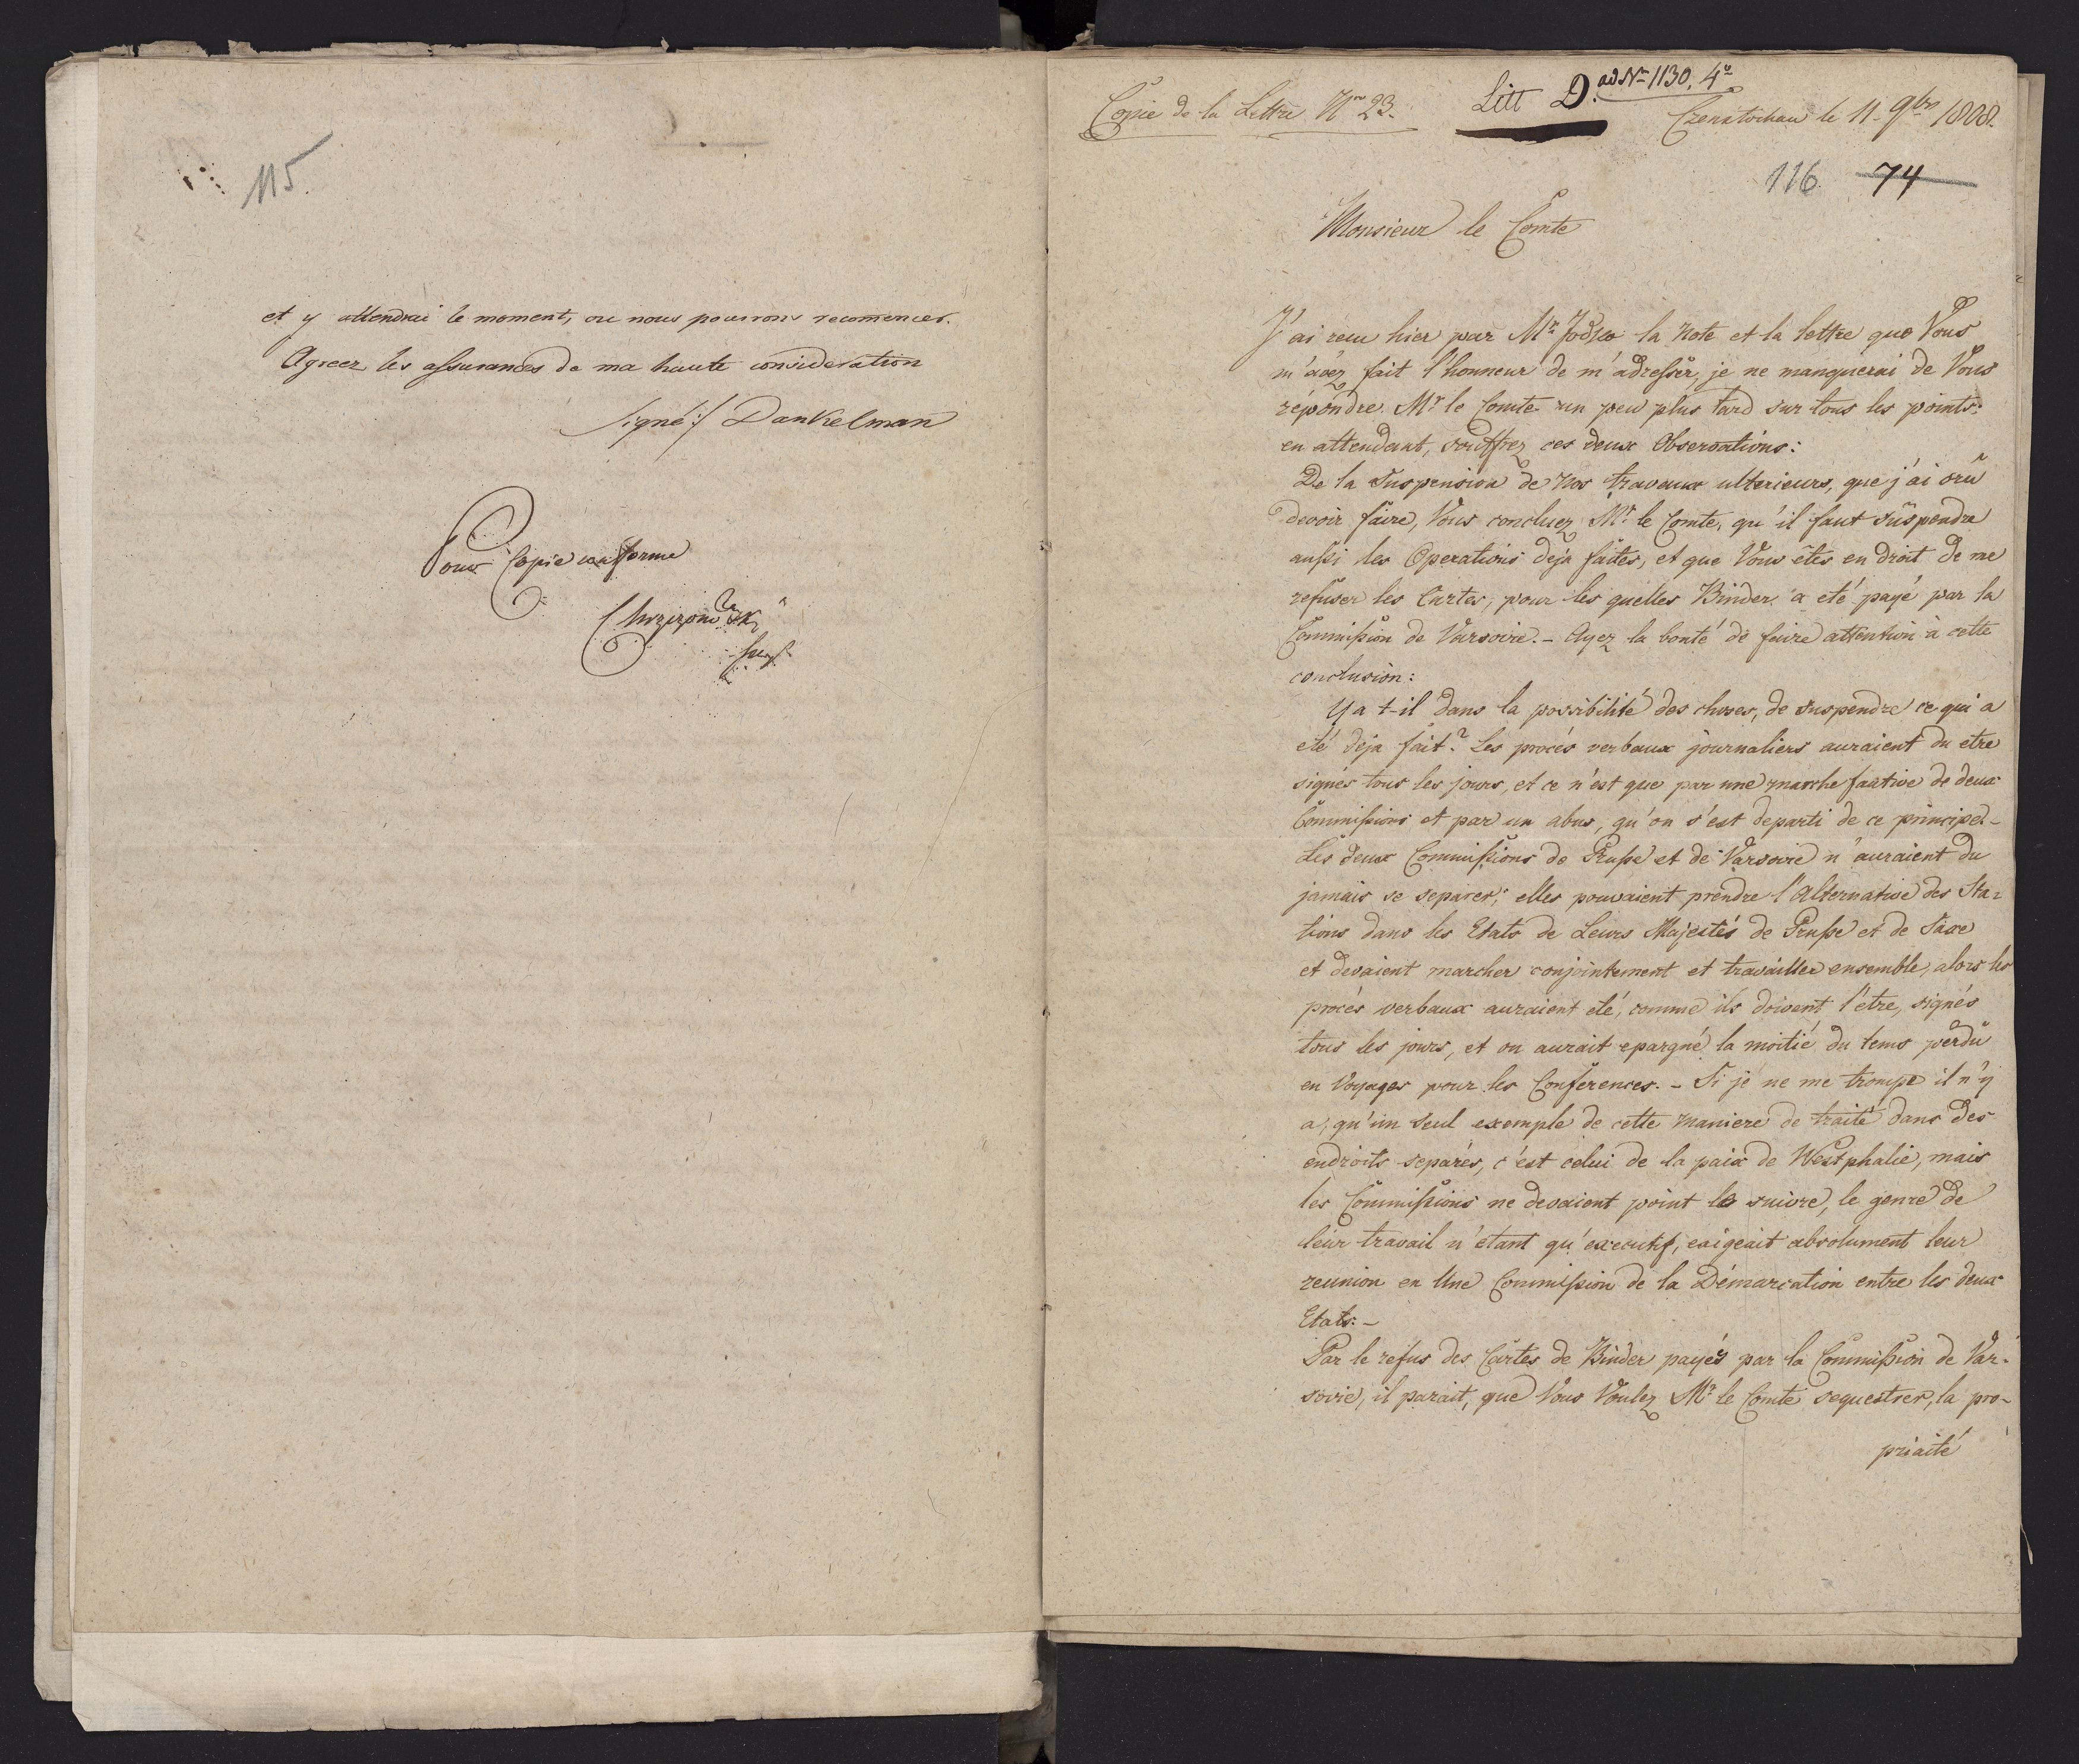 115.
et y attendrai le moment, ou nous pourrons recomencer.
Agreez les assurances de ma haute consideration
signé:/ Dankelman
Pour Copie conforme
Copie de la Lettre Nro 23.
Litt D. ad Nro 1130. 4u
Czenstochau le 11 9bre 1808.
116. 74
Monsieur le Comte
J'ai reçu hier par Mr Jodko la Note et la lettre que Vous
m'avez fait l'honneur de m'adresser, je ne manquerai de Vous
répondre Mr le Comte un peu plus tard sur tous les points:
en attendant, souffrez ces deux Observations:
De la Suspension de Nos travaux ulterieurs, que j'ai crû
devoir faire, Vous concluez Mr le Comte, qu'il faut suspendre
aussi les Operations deja faites, et que Vous êtes en droit de me
refuser les Cartes, pour les quelles Binder a eté payé par la
Commission de Varsovie. - Ayez la bonté de faire attention à cette
conclusion:
Y a t-il dans la possibilité des choses, de suspendre ce qui a
eté deja fait? Les procés verbaux journaliers auraient du etre
signés tous les jours, et ce n'est que par une marche factice de deux
Commissions et par un abus, qu'on s'est departi de ce principe. -
Les deux Commissions de Prusse et de Varsovie n'auraient du
jamais se separer; elles pouvaient prendre l'Alternative des Sta=
tions dans les Etats de Leurs Majestés de Prusse et de Saxe
et devaient marcher conjointement et travailler ensemble, alors les
procés verbaux auraient eté, comme ils doivent l'etre, signés
tous les jours, et on aurait epargné la moitié du tems perdu
en Voyages pour les Conferences. - Si je ne me trompe il n'y
a, qu'un seul exemple de cette maniere de traité dans des
endroits separés, c'est celui de la paix de Westphalie, mais
les Commissions ne devaient point le suivre, le genre de
leur travail n'etant qu'executif, exigeait absolument leur
reunion en Une Commission de la Démarcation entre les deux
Etats: -
Par le refus des Cartes de Binder payés par la Commission de Var-
sovie, il parait, que Vous Voulez Mr le Comte sequestrer, la pro-
priaité